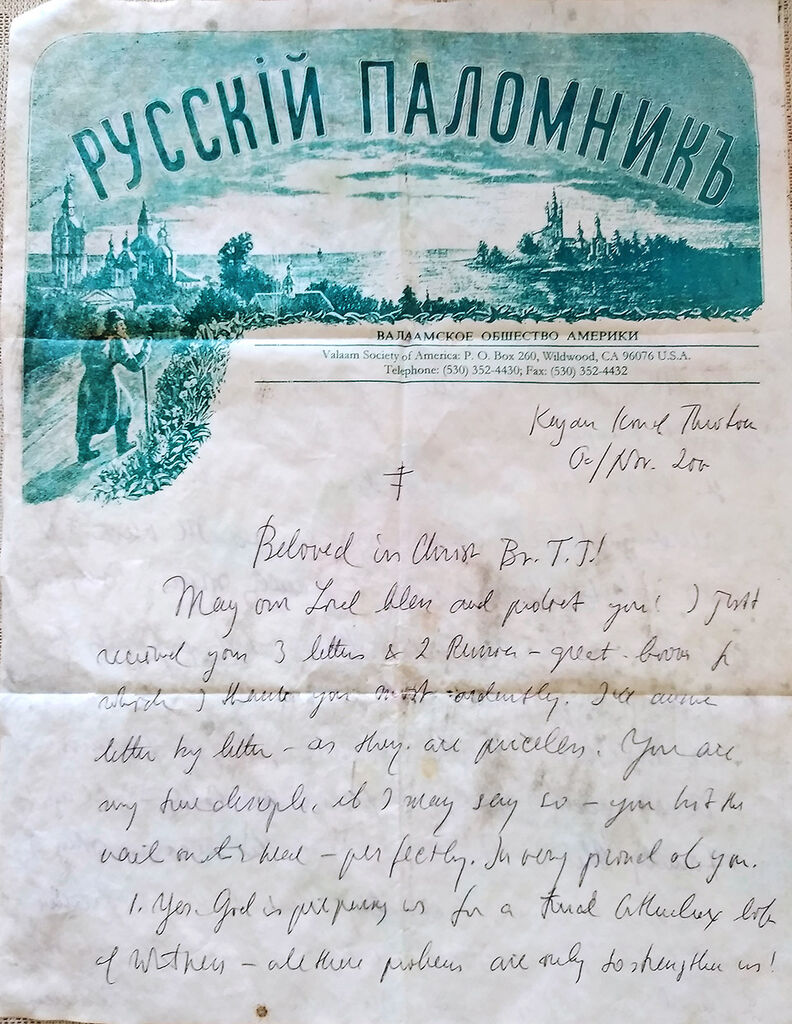 РУССКІЙ ПАЛОМНИКЪ
ВАЛААМСКОЕ ОБШЕСТВО АМЕРИКИ
Valaam Society of America: P. O. Box 260, Wildwood, CA 96076 U.S.A.
Telephone: (530) 352-4430; Fax: (530) 352-4432
/Nov. 200
Beloved in Christ Br. T.J!
May our Lord bless and protect you! I just
received your 3 letters & 2 – great
which I thank you most ardently. I'll
letter by letter – as they are priceless. You are
my true disciple, if I may say so – you hit the
nail on the head – perfectly. I'm very proud of you.
1. Yes. God is preparing us for a final
of Witness – all these problems are only to strengthen us!